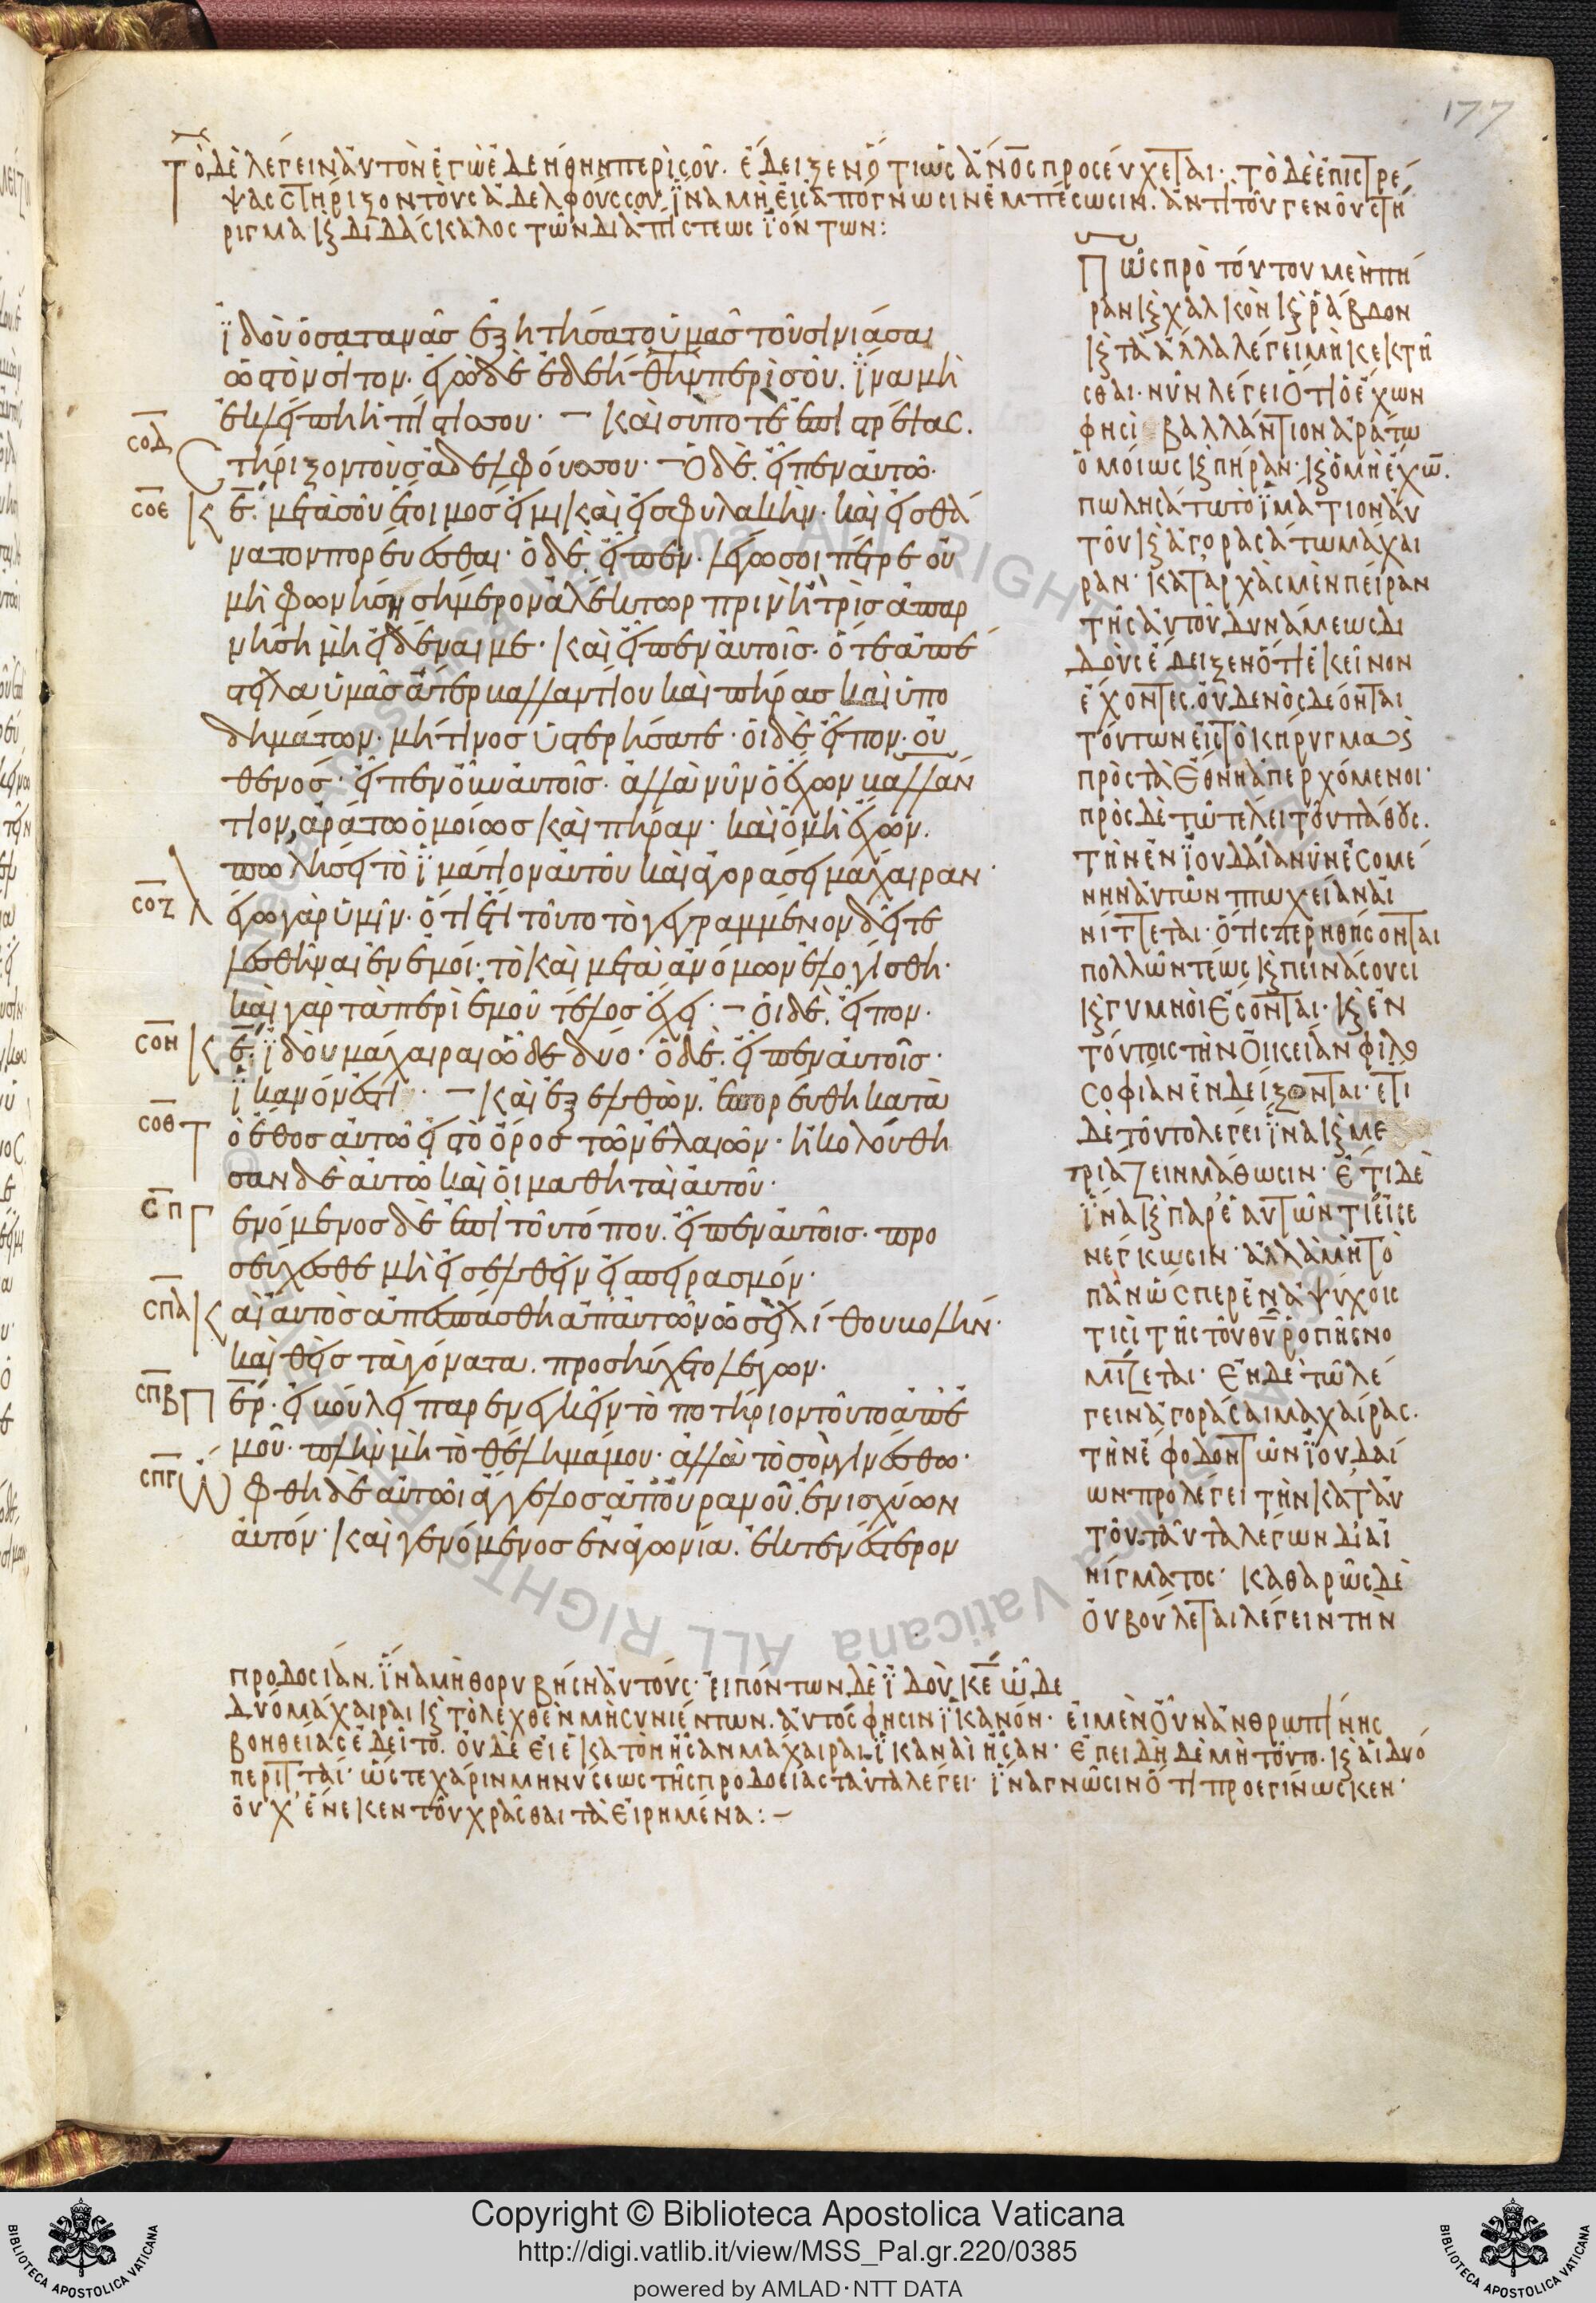 177
Τὸ δὲ λέγειν αὐτὸν ἐγὼ ἐδεήθην περὶ σοῦ. ἔδειξεν ὅτι ὡς ἄνος προσεύχεται· τὸ δὲ ἐπιστρέ
ψας στήριξον τοὺς ἀδελφούς σου, ἵνα μὴ εἰς ἀπόγνωσιν ἐμπέσωσιν. ἀντὶ τοῦ γενοῦ στή
ριγμα κ διδάσκαλος τῶν διὰ πίστεως ἰόντων:
ἰδοὺ ὁ σατανᾶς ἐξητήσατο ὑμᾶς τοῦ σινιάσαι
ὡς τὸν σῖτον· ἐγὼ δὲ ἐδεήθην περὶ σοῦ. ἵνα μὴ
ἐκλείπῃ ἡ πίστις σου· – καὶ σύ ποτε ἐπιστρέψας.
σοδ Στήριξον τοὺς ἀδελφούς σου· – Ὁ δὲ εἶπεν αὐτῶ·
σοε Κε· μετὰ σοῦ ἕτοιμός εἰμι καὶ εἰς φυλακὴν· καὶ εἰς θά
νατον πορεύεσθαι· ὁ δὲ εἶπεν· λέγω σοι πέτρε οὐ
μὴ φωνήσῃ σήμερον ἀλέκτωρ πρινὴ τρὶς ἀπαρ
νήσῃ μὴ εἰδέναι με· καὶ εἶπεν αὐτοῖς· ὅτε ἀπέ
στειλα ὑμᾶς ἄτερ βαλλαντίου καὶ πήρας καὶ ὑπο
δημάτων· μή τινος ὑστερήσατε· οἱ δὲ εἶπον· οὐ
θενός· εἶπεν οὖν αὐτοῖς· ἀλλὰ νῦν ὁ ἔχων βαλλάν
τιον, ἀράτω ὁμοίως καὶ πήραν· καὶ ὁ μὴ ἔχων.
πωλήσει τὸ ἱμάτιον αὐτοῦ καὶ ἀγοράσει μάχαιραν·
σοζ λέγω γὰρ ὑμῖν· ὅτι ἔτι τοῦτο τὸ γεγραμμένον δεῖ τε
λεσθῆναι ἐν ἐμοί· τὸ καὶ μετὰ ἀνόμων ἐλογίσθη·
καὶ γὰρ τὰ περὶ ἐμοῦ τέλος ἔχει· – οἱ δὲ. εἶπον·
σοη Κε· ἰδοὺ μάχαιραι ὧδε δύο· ὁ δὲ. εἶπεν αὐτοῖς·
ἱκανόν ἐστι· – Καὶ ἐξελθὼν. ἐπορεύθη κατὰ
σοθ Τὸ ἔθος αὐτῶ εἰς τὸ ὄρος τῶν ἐλαιῶν· ἠκολούθη
σαν δὲ αὐτῶ καὶ οἱ μαθηταὶ αὐτοῦ·
σπ Γενόμενος δὲ ἐπὶ τοῦ τόπου. εἶπεν αὐτοῖς· προ
σεύχεσθε μὴ εἰσελθεῖν εἰς πειρασμόν·
σπα Καὶ αὐτὸς ἀπεσπάσθη ἀπ αὐτῶν ὡσεὶ λίθου βολήν·
καὶ θεὶς τὰ γόνατα. προσηύχετο λέγων·
σπβ Περ· εἰ βούλει παρενεγκεῖν τὸ ποτήριον τοῦτο ἀπ ἐ
μοῦ· πλὴν μὴ τὸ θέλημά μου· ἀλλὰ τὸ σὸν γινέσθω·
σπγ Ὤφθη δὲ αὐτῶι ἄγγελος ἀπ οὐρανοῦ. ἐνισχύων
αὐτόν· Καὶ γενόμενος ἐν ἀγωνία. ἐκτενέστερον
Πῶς πρὸ τούτου μὲν πή
ραν κ χαλκὸν κ ῥάβδον
κ τὰ ἄλλα λέγει μὴ κεκτῆ
σθαι· νῦν λέγει ὅτι ὁ ἔχων
φησὶ βαλλάντιον ἀράτω
ὁμοίως κ πήραν· κ ὁ μὴ ἔχω.
πωλησάτω τὸ ἱμάτιον αὐ
τοῦ κ ἀγορασάτω μάχαι
ραν· Καταρχὰς μὲν πεῖραν
τῆς αὐτοῦ δυνάμεως δι
δοὺς ἔδειξεν ὅτι ἐκεῖνον
ἔχοντες. οὐδενὸς δέονται
τούτων εἰς τὸ κήρυγμα
πρὸς τὰ ἔθνη ἀπερχόμενοι·
πρὸς δὲ τῶ τέλει τοῦ πάθους.
τὴν ἐν ἰουδαία νῦν ἐσομέ
νην αὐτῶν πτωχείαν αἰ
νίττεται· ὅτι στερηθήσονται
πολλῶν τέως κ πεινάσουσι
κ γυμνοὶ ἔσονται· κ ἐν
τούτοις τὴν οἰκείαν φιλο
σοφίαν ἐνδείξονται· ἔτι
δὲ τοῦτο λέγει ἵνα κ με
τριάζειν μάθωσιν· ἔτι δὲ
ἵνα κ παρ' ἑαυτῶν τι εἰσε
νέγκωσιν· ἀλλὰ μὴ τὸ
πᾶν ὥσπερ ἐν ἀψύχοις
τισὶ τῆς τοῦ θυ ῥοπῆς νο
μίζεται· Ἐν δὲ τῶ λέ
γειν ἀγοράσαι μαχαίρας·
τὴν ἔφοδον τῶν ἰουδαί
ων προλέγει τὴν κατ' αὐ
τοῦ. ταῦτα λέγων δι' αἰ
νίγματος· Καθαρῶς δὲ
οὐ βούλεται λέγειν τὴν
προδοσίαν. ἵνα μὴ θορυβήση αὐτούς· εἰπόντων δὲ ἰδοὺ κε ὧδε
δύο μάχαιραι κ τὸ λεχθὲν μὴ συνιέντων. αὐτός φησιν ἱκανόν· εἰ μὲν οὖν ἀνθρωπίνης
βοηθείας ἐδεῖτο. οὐδὲ εἰ ἑκατὸν ἦσαν μάχαιραι ἱκαναὶ ἦσαν· ἐπειδὴ δὲ μὴ τοῦτο. κ αἱ δύο
περιτταί· ὥστε χάριν μηνύσεως τῆς προδοσίας ταῦτα λέγει· ἵνα γνῶσιν ὅτι προεγίνωσκεν·
οὐχ' ἕνεκεν τοῦ χρᾶσθαι τὰ εἰρημένα: –
Copyright © Biblioteca Apostolica Vaticana
http://digi.vatlib.it/view/MSS_Pal.gr.220/0385
powered by AMLAD·NTT DATA
BIBLIOTECA APOSTOLICA VATICANA
BIBLIOTECA APOSTOLICA VATICANA